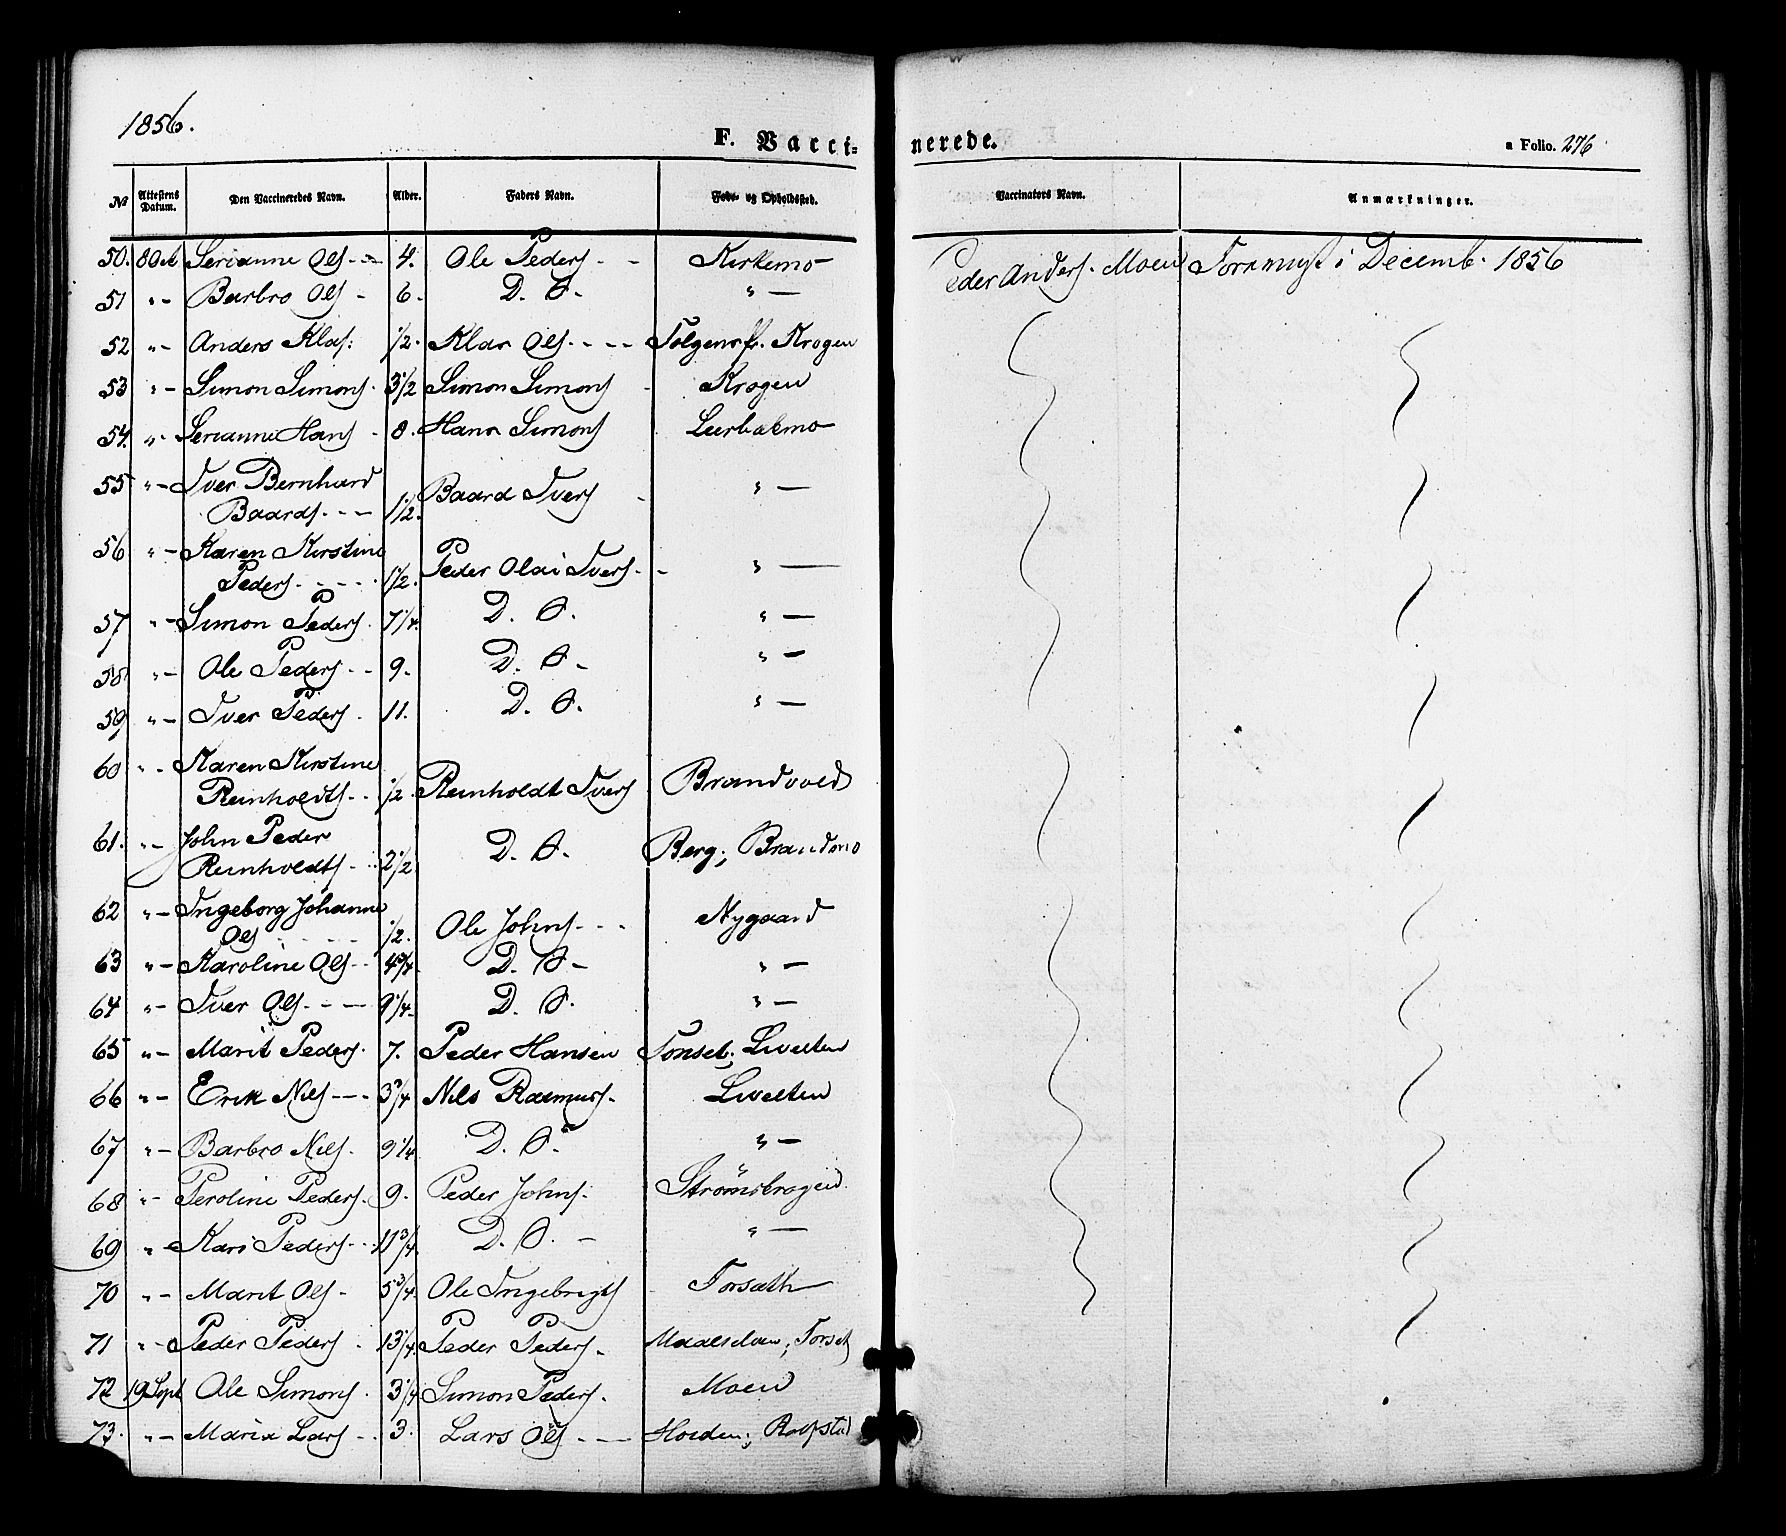 1856.
F. Vacci=
nerede.
a Folio. 276
№ Attestens Datum. Den Vaccineredes Navn. Alder. Faders Navn. Føde- og Opholdssted. Vaccinators Navn. Anmærkninger.
50. Serianne Ols - - 4. Ole Peders - - Kirkemo Peder Anders. Moen i Decemb. 1856
51 " - Barbro Ols - 6. D. O. " -
52 " - Anders Klas: 1/2. Klas Ols. - - - Krogen
53 " - Simon Simons. 3 1/2 Simon Simons - Krogen
54. " - Serianne Hans - 8. Hans Simons Leerbakmo
55 " - Iver Bernhard
Baards. - - 1 1/2. Baard Ivers - " -
56 " - Karen Kirstine
Peders - - - - 1 1/2. Peder Olai Ivers - - " -
57 " - Simon Peders. 7 1/4. D. O. " -
58 " - Ole Peders - - 9. D. O. - " -
59 " - Iver Peders. 11. D. O. " -
60 " - Karen Kirstine
Reinholdts - - 1/2. Reinholdt Ivers Brandvold
61. " - John Peder
Reinholdts - 2 1/2 D. O. Berg; Brandmo
62 " - Ingeborg Johanne
Ols - - - 1/2. Ole Johns - - - Nygaard
63 " - Karoline Ols - - 4 3/4 D. O. - " -
64 " - Iver Ols - - - 9 1/4. D. O. " -
65 " - Marit Peders. 7. Peder Hansen Tonset; Livelten
66 " - Erik Nils - - - 3 3/4 Nils Rasmus. Livelten
67 " - Barbro Nils. 9 1/4 D. O. " -
68 " - Peroline Peders. 9. Peder Johns. Strömsbrogen
69 " - Kari Peders - - 11 3/4. D. O. - " -
70 " - Marit Ols - 5 3/4. Ole Ingebrigts Forsæth
71 " - Peder Peders - 13 1/4 Peder Peders. Forset
72 19 Sept Ole Simons. 3 1/4 Simon Peders. Moen
73. " - Maria Lars - - 3. Lars Ols - - -